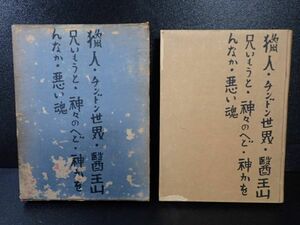 猟人・チンドン世界・醫王山
兄いもうと・神々のへど・神かを
んなか・悪い魂
猟人・チンドン世界・醫王山
兄いもうと・神々のへど・神かを
んなか・悪い魂